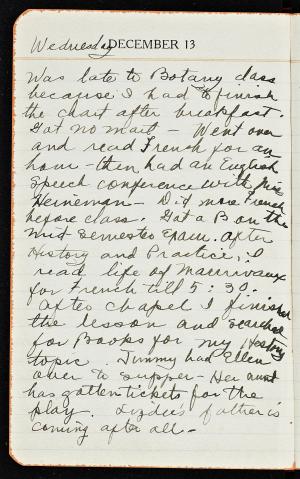 Wednesday DECEMBER 13
Was late to Botany class
because I had to finish
the chart after breakfast.
Got no mail - Went over
and read French for an
hour - then had an English
Speech conference with Miss
Heineman - Did more French
before class. Got a B on the
mid semester Exam. After
History and Practice, I
read life of Marivaux
for French till 5:30.
After chapel I finished
the lesson and searched
for Books for my History
topic. Jimmy had Ellen
over to supper - Her aunt
has gotten tickets for the
play. father is
coming after all -